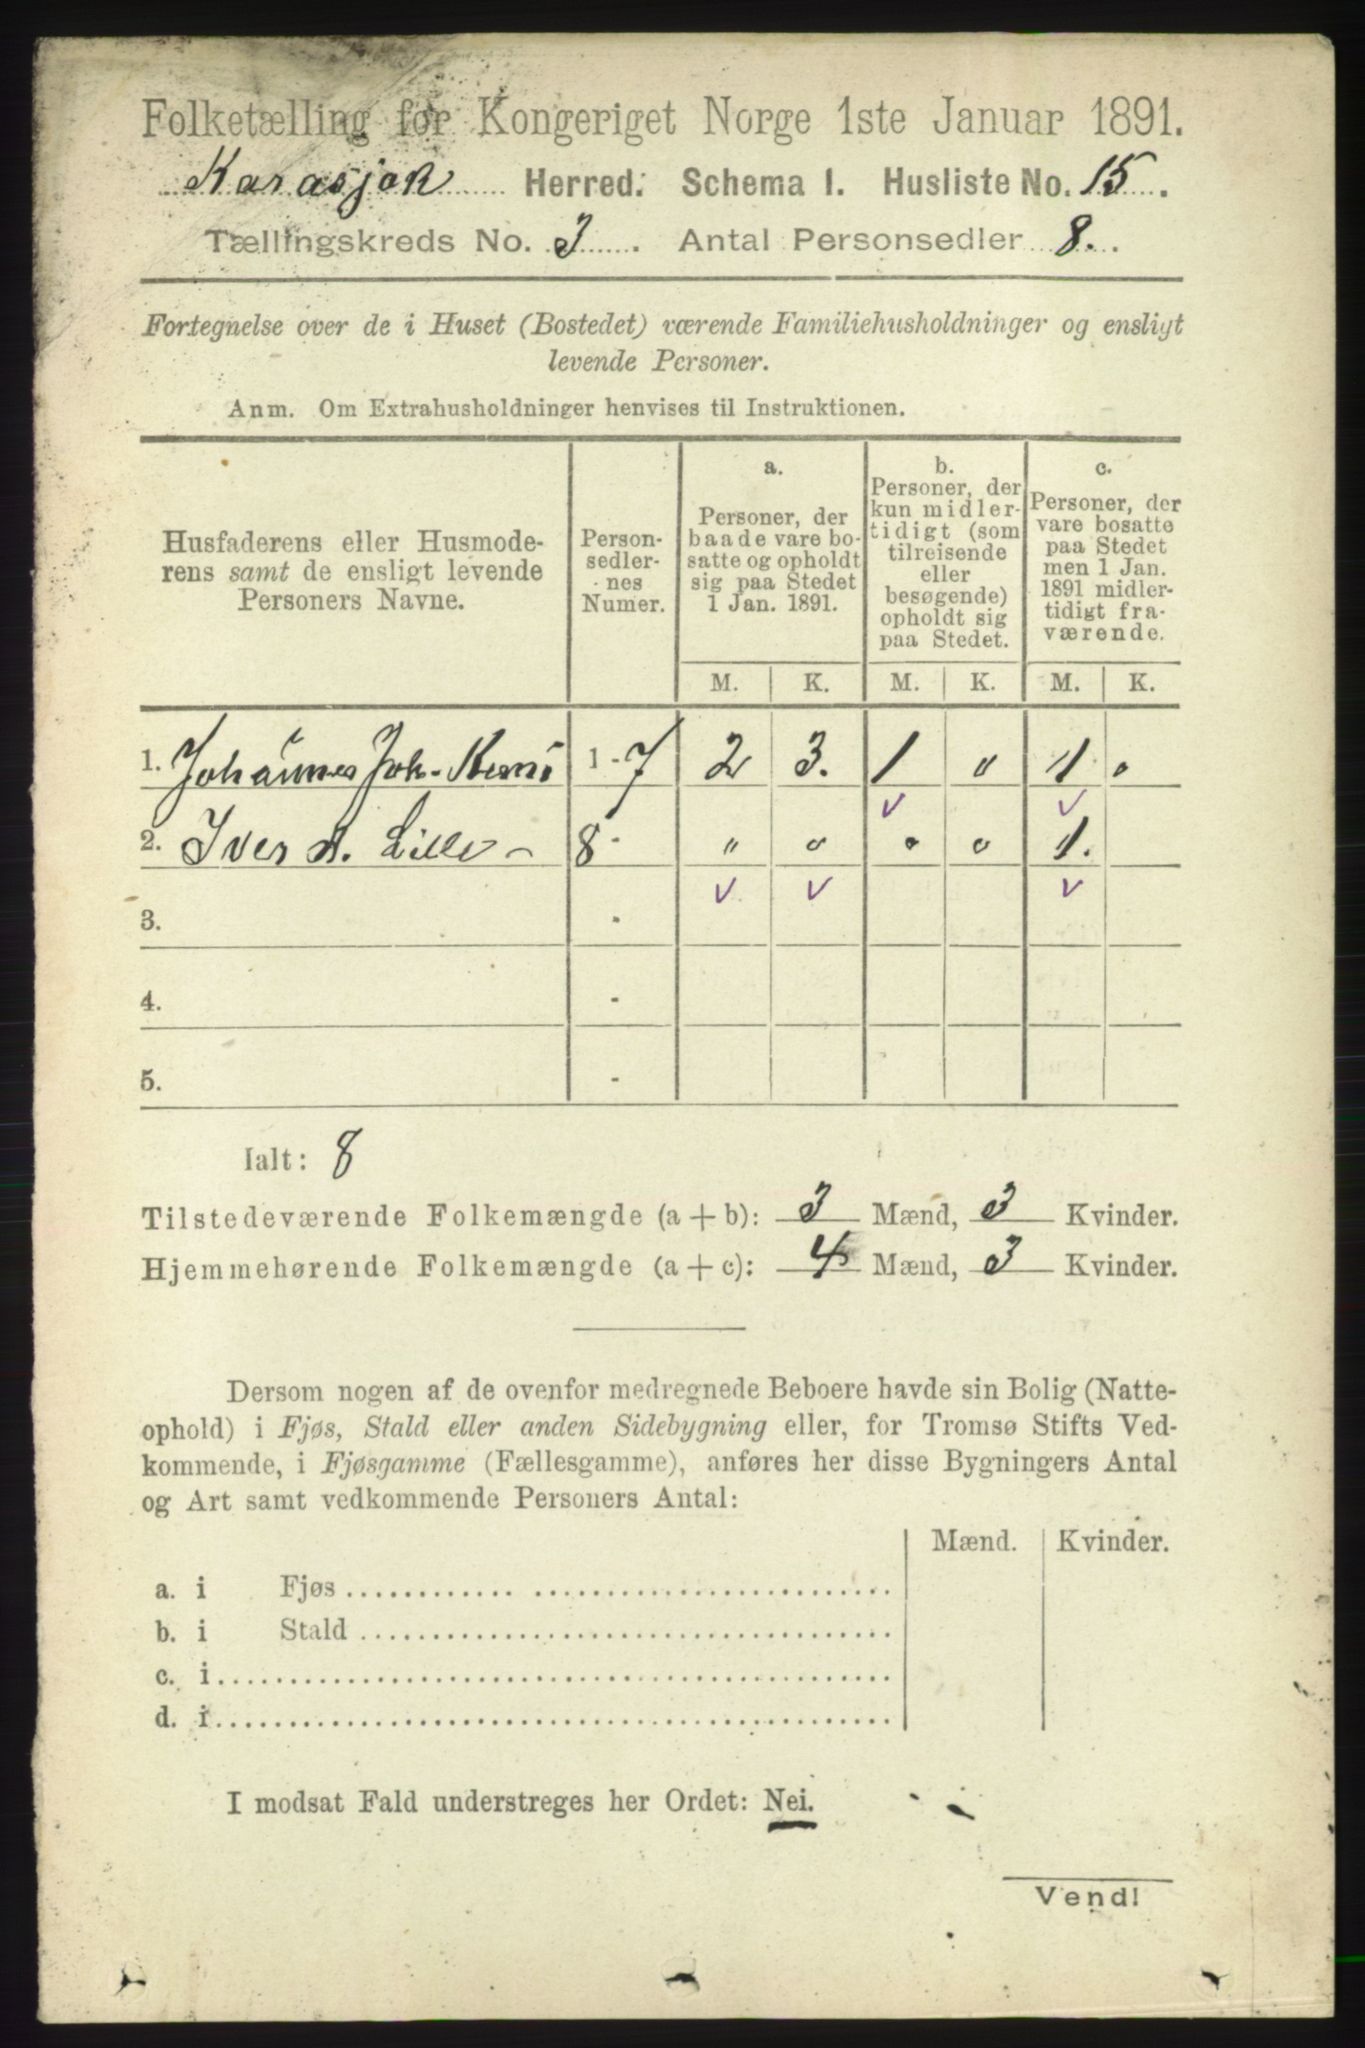 Folketælling for Kongeriget Norge 1ste Januar 1891.
Karasjok Herred. Schema I. Husliste No. 15.
Tællingskreds No. 3. Antal Personsedler 8.
Fortegnelse over de i Huset (Bostedet) værende Familiehusholdninger og ensligt
levende Personer.
Anm. Om Extrahusholdninger henvises til Instruktionen.
Husfaderens eller Husmode-
rens samt de ensligt levende
Personers Navne.
Person-
sedler-
nes
Numer.
a.
Personer, der
baade vare bo-
satte og opholdt
sig paa Stedet
1 Jan. 1891.
b.
Personer, der
kun midler-
tidigt (som
tilreisende
eller
besøgende)
opholdt sig
paa Stedet.
c.
Personer, der
vare bosatte
paa Stedet
men 1 Jan.
1891 midler-
tidigt fra-
værende.
M. K. M. K. M. K.
1. Johannes Joh. 1 - 7 2 3. 1 " 1 "
2. Iver A. Lille - 8 - " " " " 1.
3. -
4. -
5. -
Ialt: 8
Tilstedeværende Folkemængde (a + b): 3 Mænd, 3 Kvinder.
Hjemmehørende Folkemængde (a + c): 4 Mænd, 3 Kvinder.
Dersom nogen af de ovenfor medregnede Beboere havde sin Bolig (Natte-
ophold) i Fjøs, Stald eller anden Sidebygning eller, for Tromsø Stifts Ved-
kommende, i Fjøsgamme (Fællesgamme), anføres her disse Bygningers Antal
og Art samt vedkommende Personers Antal:
Mænd. Kvinder.
a. i Fjøs
b. i Stald
c. i
d. i
I modsat Fald understreges her Ordet: Nei.
Vend!